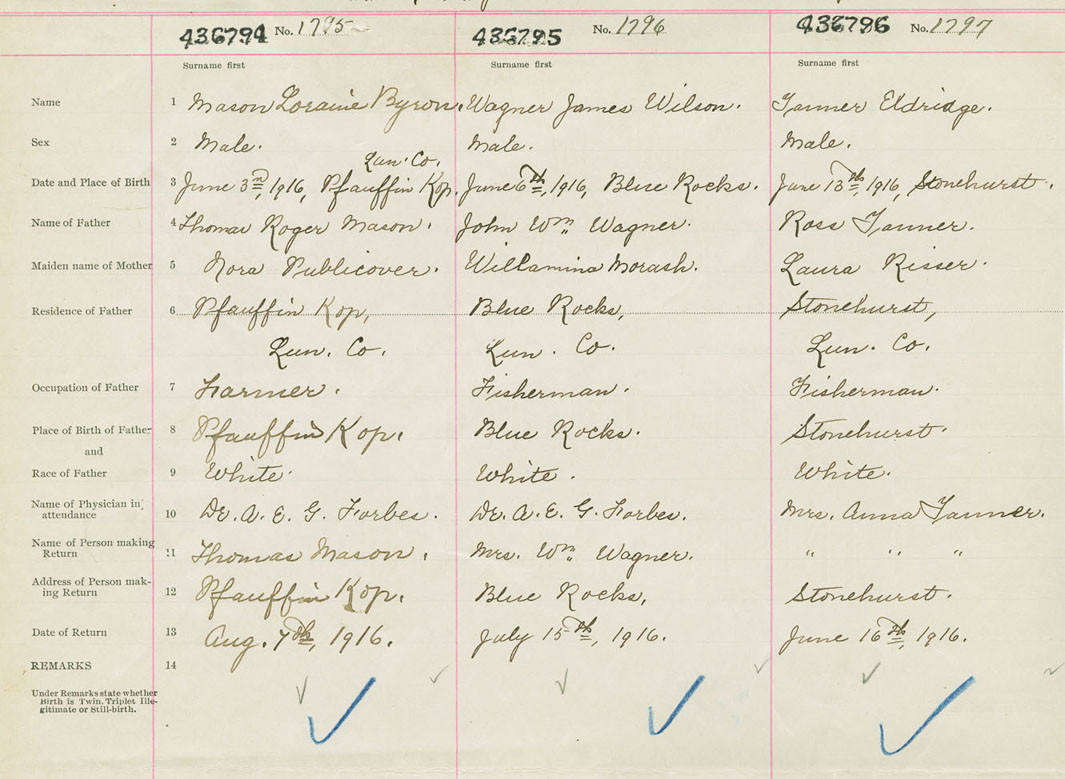 436794 No. 1795 436795 No. 1796 436796 No. 1797
Surname first Surname first Surname first
Name 1 Mason Loraine Byron. Wagner James Wilson. Tanner Eldridge.
Sex 2 Male. Male. Male.
Lun. Co.
Date and Place of Birth 3 June 3rd, 1916, Pfauffin Kop. June 6th, 1916, Blue Rocks. June 13th, 1916, Stonehurst.
Name of Father 4 Thomas Roger Mason. John Wm. Wagner. Ross Tanner.
Maiden name of Mother 5 Nora Publicover. Willamina Morash. Laura Risser.
Residence of Father 6 Pfauffin Kop, Blue Rocks, Stonehurst,
Lun. Co. Lun. Co. Lun. Co.
Occupation of Father 7 Farmer. Fisherman. Fisherman.
Place of Birth of Father 8 Pfauffin Kop. Blue Rocks. Stonehurst.
and
Race of Father 9 White. White. White.
Name of Physician in
attendance 10 Dr. A. E. G. Forbes. Dr. A. E. G. Forbes. Mrs. Anna Tanner.
Name of Person making
Return 11 Thomas Mason. Mrs. Wm. Wagner. " " "
Address of Person mak-
ing Return 12 Pfauffin Kop. Blue Rocks, Stonehurst.
Date of Return 13 Aug. 7th, 1916. July 15th, 1916. June 16th, 1916.
REMARKS 14
Under Remarks state whether
Birth is Twin. Triplet Ille-
gitimate or Still-birth.